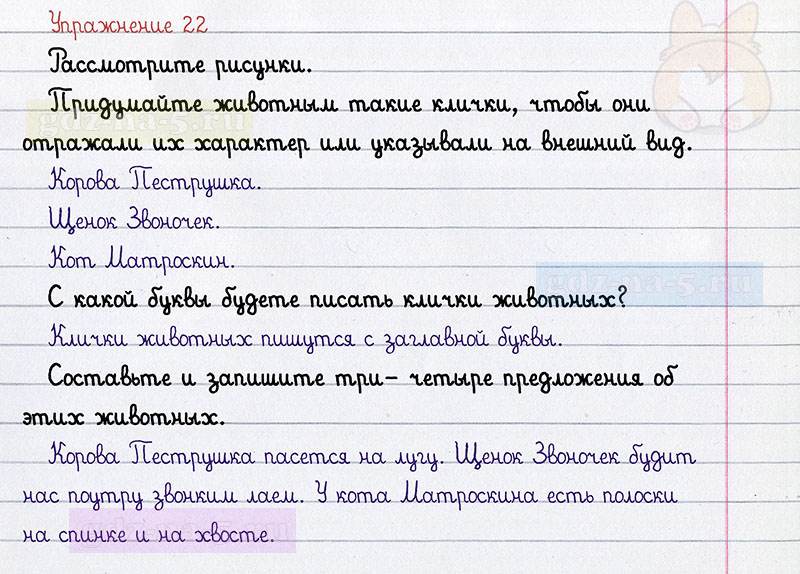 Упражнение 22
Рассмотрите рисунки.
Придумайте животным такие клички, чтобы они
gdz-na-5.ru
отражали их характер или указывали на внешний вид.
Корова Пеструшка.
Щенок Звоночек.
Кот Матроскин.
gdz-na-5.ru
С какой буквы будете писать клички животных?
Клички животных пишутся с заглавной буквы.
Составьте и запишите три– четыре предложения об
этих животных.
Корова Пеструшка пасется на лугу. Щенок Звоночек будит
нас поутру звонким лаем. У кота Матроскина есть полоски
на спинке и на хвосте.
gdz-na-5.ru